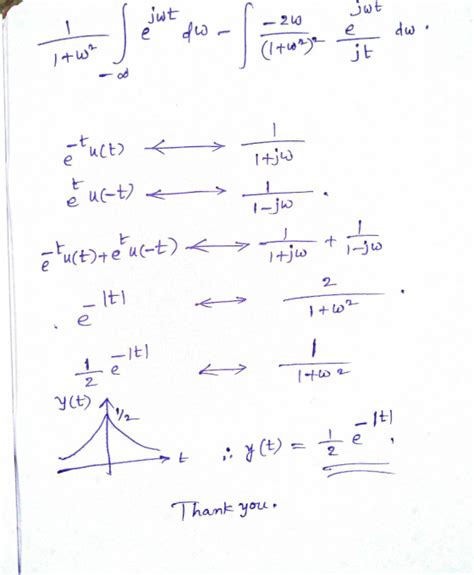 1/(1+ω²) ∫_{-∞} e^{jωt} dω - ∫ -2ω/(1+ω²)² e^{jωt}/jt dω.
e^{-t}u(t) ⟷ 1/(1+jω)
e^{t} u(-t) ⟷ 1/(1-jω).
e^{-t}u(t)+e^{t}u(-t) ⟷ 1/(1+jω) + 1/(1-jω)
. e^{-|t|} ⟷ 2/(1+ω²).
1/2 e^{-|t|} ⟷ 1/(1+ω²)
y(t) 1/2 t
∴ y(t) = 1/2 e^{-|t|}.
Thank you.